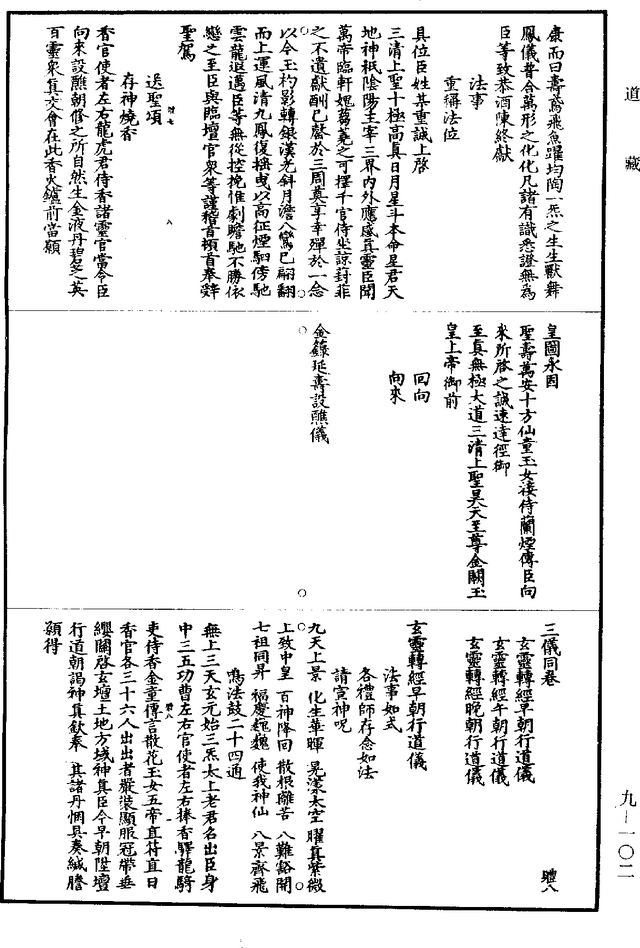 道藏
康而曰壽鳶飛魚躍均陶一炁之生生獸舞
鳳儀普令萬形之化化凡諸有識悉證無為
臣等致恭酒陳終獻
法事
重稱法位
具位臣姓某重誠上啓
三清上聖十極高真日月星斗本命星君天
地神祇陰陽主宰三界內外應感真靈臣聞
萬帝臨軒媿蒭蕘之可擇千官侍坐諒葑菲
之不遺獻酬已罄於三周奠享幸殫於一念
以今玉杓影轉銀漢光斜月澹八鸞已翩翻
而上運風清九鳳復搖曳以高征煙駟傍馳
雲龍遐邁臣等無從控挽惟劇瞻馳不勝依
戀之至臣與臨壇官衆等謹稽首頓首奉辤
聖駕
送聖頌
存神燒香
香官使者左右龍虎君侍香諸靈官當令臣
向來設醮朝修之所自然生金液丹碧芝英
百靈衆真交會在此香火鑪前當願
皇國永固
聖壽萬安十方仙童玉女接侍蘭煙傳臣向
來所啓之誠速達徑御
至真無極大道三清上聖昊天至尊金闕玉
皇上帝御前
回向
向來
金籙延壽設醮儀
三儀同卷
體八
玄靈轉經早朝行道儀
玄靈轉經午朝行道儀
玄靈轉經晚朝行道儀
玄靈轉經早朝行道儀
法事如式
各禮師存念如法
請宣神呪
九天上景 化生華暉 晃漾太空 曜真紫微
上致中皇 百神降回 散根離苦 八難豁開
七祖同昇 福慶巍巍 使我神仙 八景齊飛
鳴法鼓二十四通
無上三天玄元始三炁太上老君召出臣身
中三五功曹左右官使者左右捧香驛龍騎
吏侍香金童傳言散花玉女五帝直符直日
香官各三十六人出出者嚴裝顯服冠帶垂
纓關啓玄壇土地方域神真臣今早朝陞壇
行道朝謁神真欽奉 其諸丹悃具奏緘謄
願得
九—一〇二